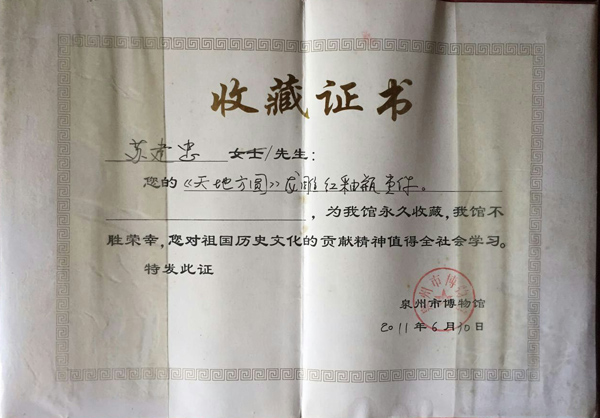 收藏证书
苏孝忠 女士/先生:
您的《天地方圆》龙雕红釉瓶壹件。
,为我馆永久收藏,我馆不
胜荣幸,您对祖国历史文化的贡献精神值得全社会学习。
特发此证
泉州市博物馆
2011年6月10日